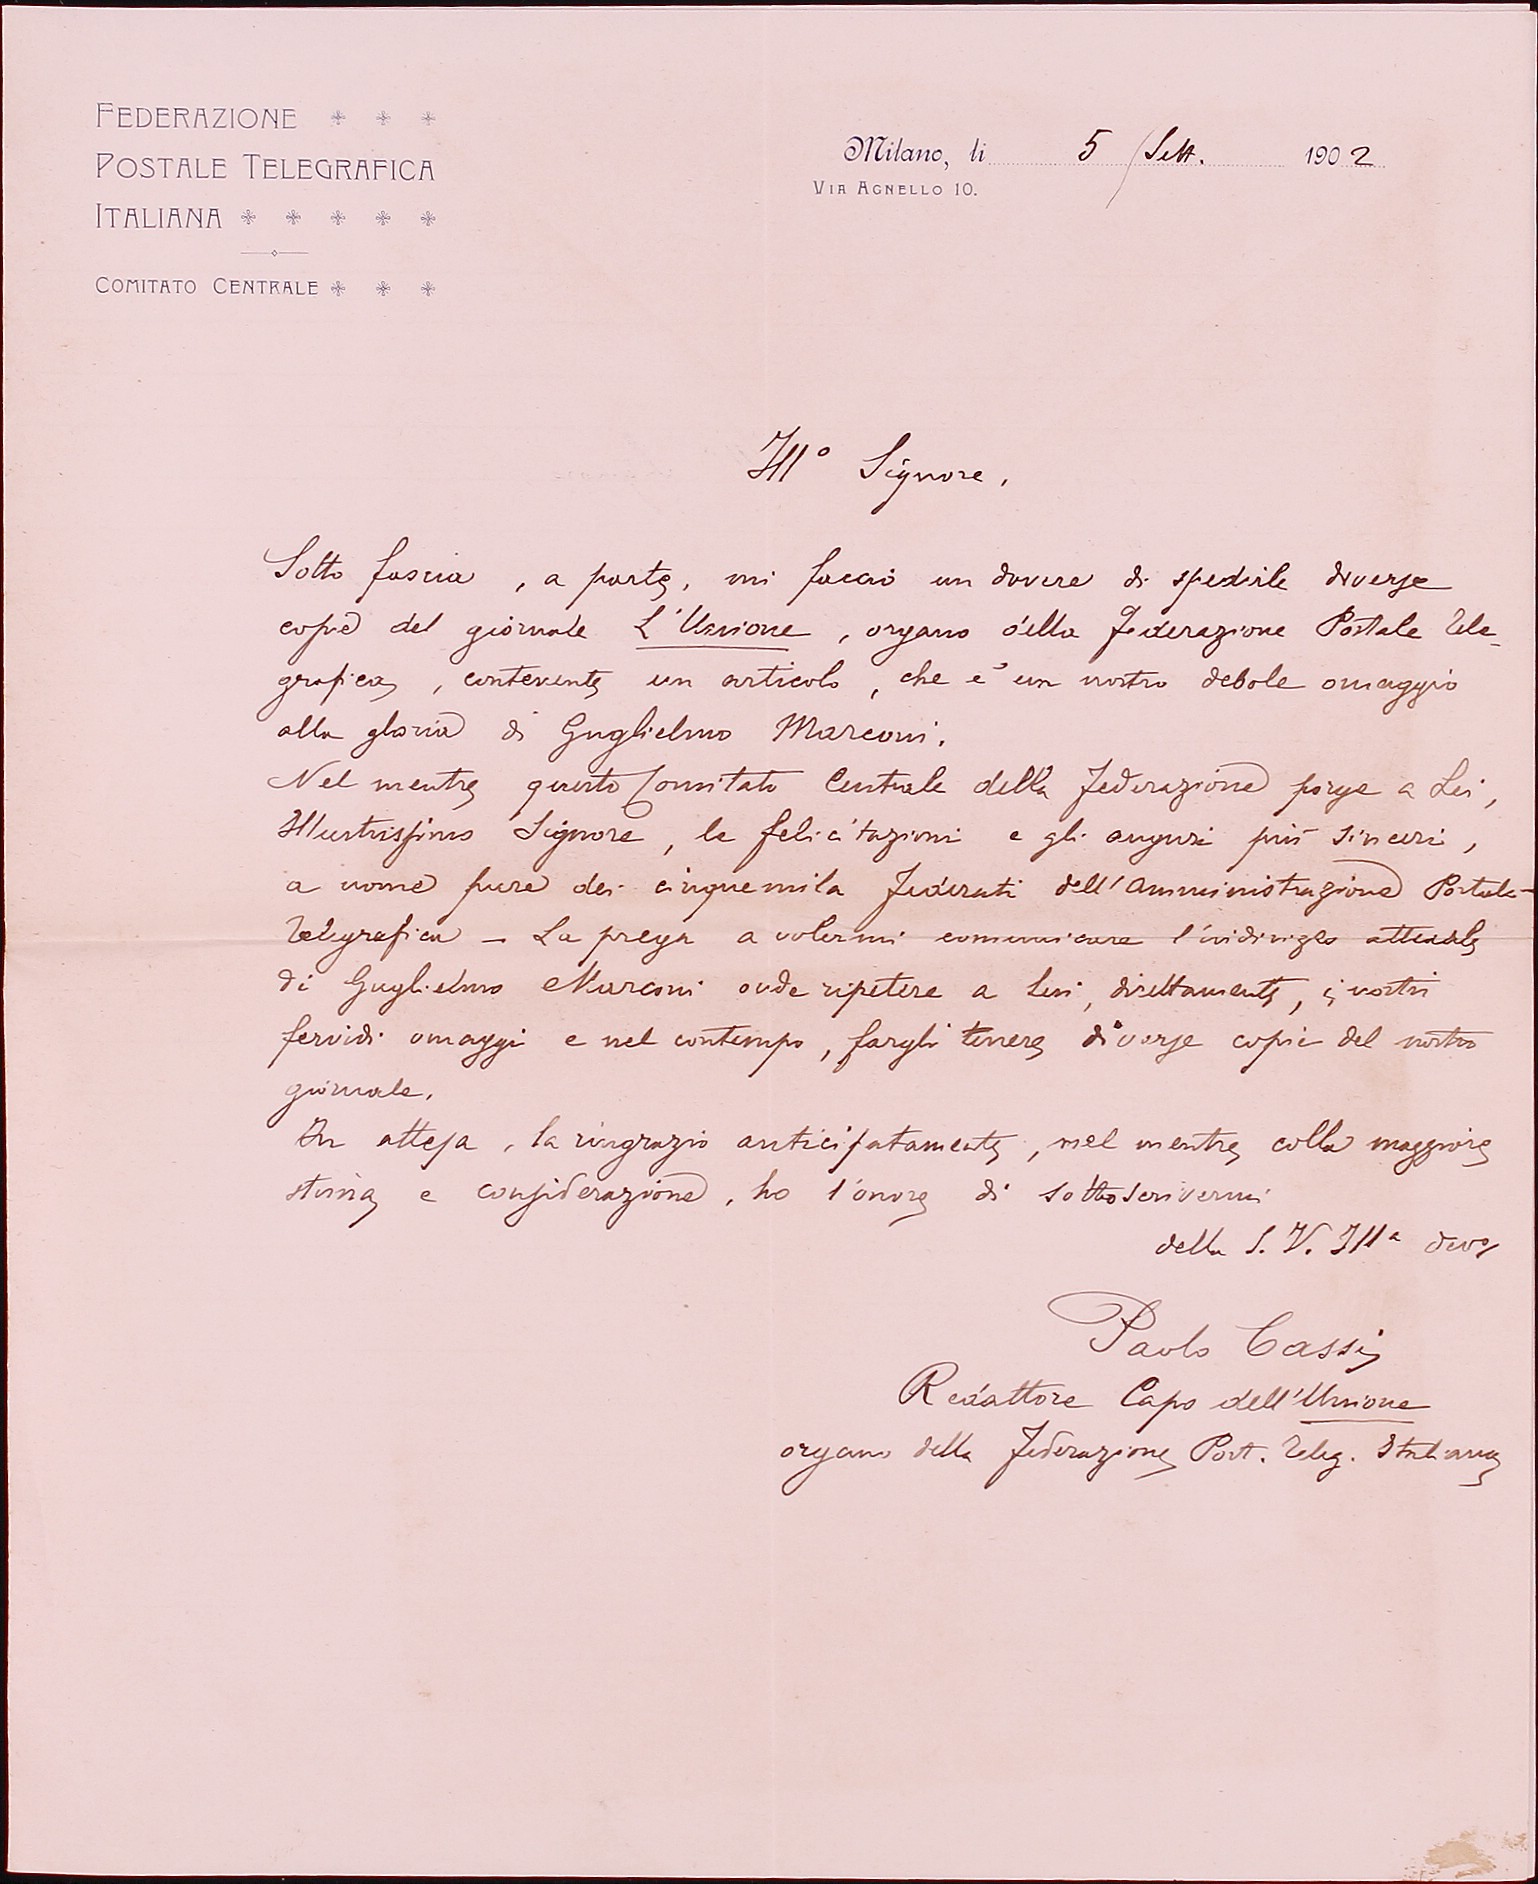 FEDERAZIONE
POSTALE TELEGRAFICA
ITALIANA
COMITATO CENTRALE
Milano, li 5 Sett. 1902
VIA AGNELLO 10.
Ill° Signore,
Sotto fascia, a parte, mi faccio un dovere di spedirle diverse
copie del giornale L'Unione, organo della Federazione Postale Tele-
grafica, contenente un articolo, che è un nostro debole omaggio
alla gloria di Guglielmo Marconi.
Nel mentre questo Comitato Centrale della Federazione porge a Lei,
Illustrissimo Signore, le felicitazioni e gli auguri più sinceri,
a nome pure dei cinquemila Federati dell'Amministrazione Postale-
Telegrafica - La prega a volermi comunicare l'indirizzo attuale
di Guglielmo Marconi onde ripetere a Lui, direttamente, i nostri
fervidi omaggi e nel contempo, fargli tenere diverse copie del nostro
giornale.
In attesa, la ringrazio anticipatamente, nel mentre colla maggiore
stima e considerazione, ho l'onore di sottoscrivermi
della S. V. Illª devo
Paolo Cassi
Redattore Capo dell'Unione
organo della Federazione Post. Teleg. Italiana